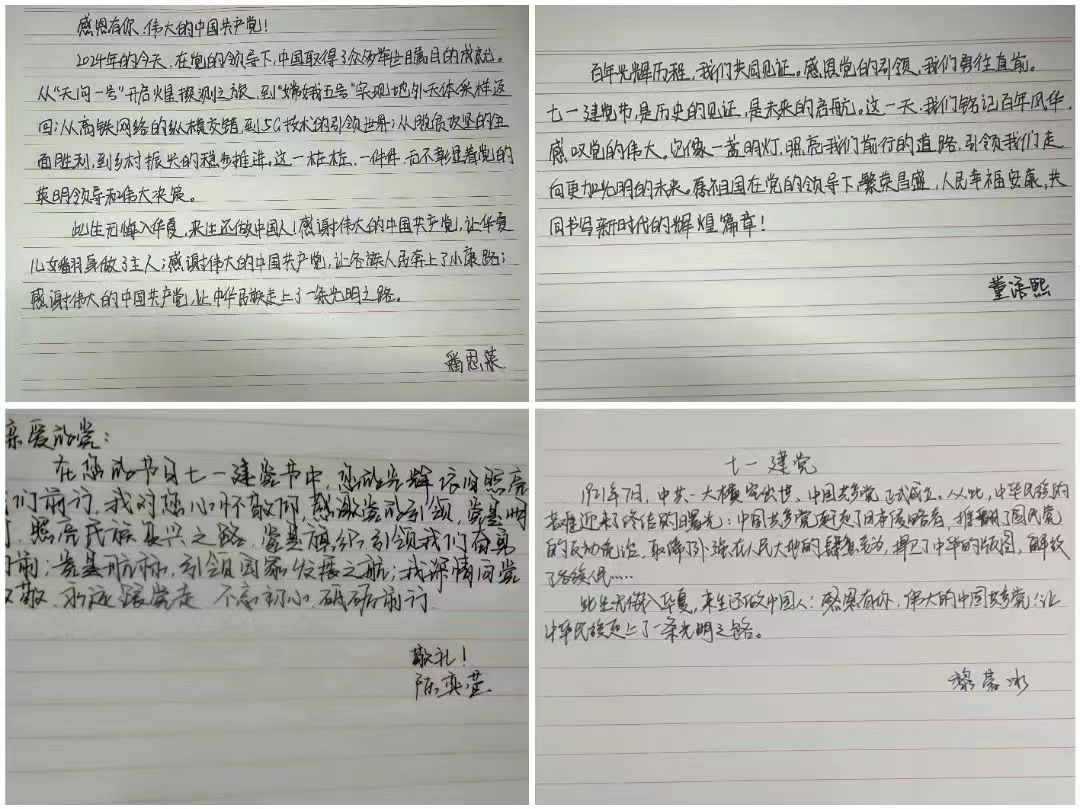 感恩有你、伟大的中国共产党！
2024年的今天、在党的领导下，中国取得了众多举世瞩目的成就。
从“天问一号”开启火星探测之旅，到“嫦娥五号”实现地外天体采样返
回；从高铁网络的纵横交错，到5G技术的引领世界；从脱贫攻坚的全
面胜利，到乡村振兴的稳步推进，这一桩桩、一件件，无不彰显着党的
英明领导和伟大决策。
此生无悔入华夏，来生还做中国人！感谢伟大的中国共产党，让华夏
儿女翻身做了主人；感谢伟大的中国共产党，让各族人民奔上了小康路；
感谢伟大的中国共产党，让中华民族走上了一条光明之路。
潘思莱
百年光辉历程，我们共同见证。感恩党的引领，我们勇往直前。
七一建党节，是历史的见证，是未来的启航。这一天，我们铭记百年风华，
感叹党的伟大。它像一盏明灯，照亮我们前行的道路，引领我们走
向更加光明的未来。愿祖国在党的领导下，繁荣昌盛，人民幸福安康，共
同书写新时代的辉煌篇章！
董添熙
亲爱的党：
在您的节日七一建党节中，您的光辉依旧照亮
我们前行，我对您心怀敬仰，感激党的引领，党是明
灯，照亮民族复兴之路，党是旗帜，引领我们奋勇
向前；党是航标，引领国家发展之航；我深情向党
致敬，永远跟党走，不忘初心，砥砺前行
敬礼！
陈奕莹
七一建党
1921年7月，中共一大横空出世，中国共产党正式成立。从此，中华民族的
苦难迎来了终结的曙光：中国共产党赶走了日本侵略者，推翻了国民党
的反动统治，取缔了外强在人民大地的肆意妄为，捍卫了中华的版图，解放
了各族人民……
此生无悔入华夏，来生还做中国人：感恩有你，伟大的中国共产党！让
中华民族走上了一条光明之路。
黎蓉冰